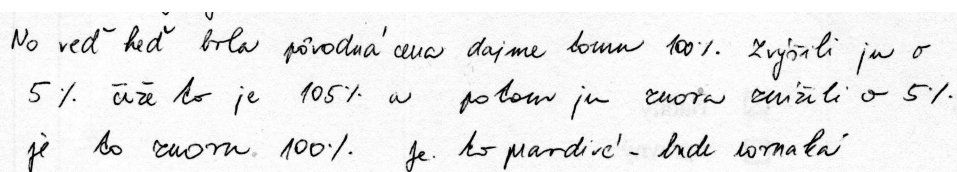 No veď keď bola pôvodná cena dajme tomu 100%. Zvýšili ju o
5%. čiže to je 105% a potom ju znova znížili o 5%.
je to znova 100%. Je to pravdivé - bude rovnaká